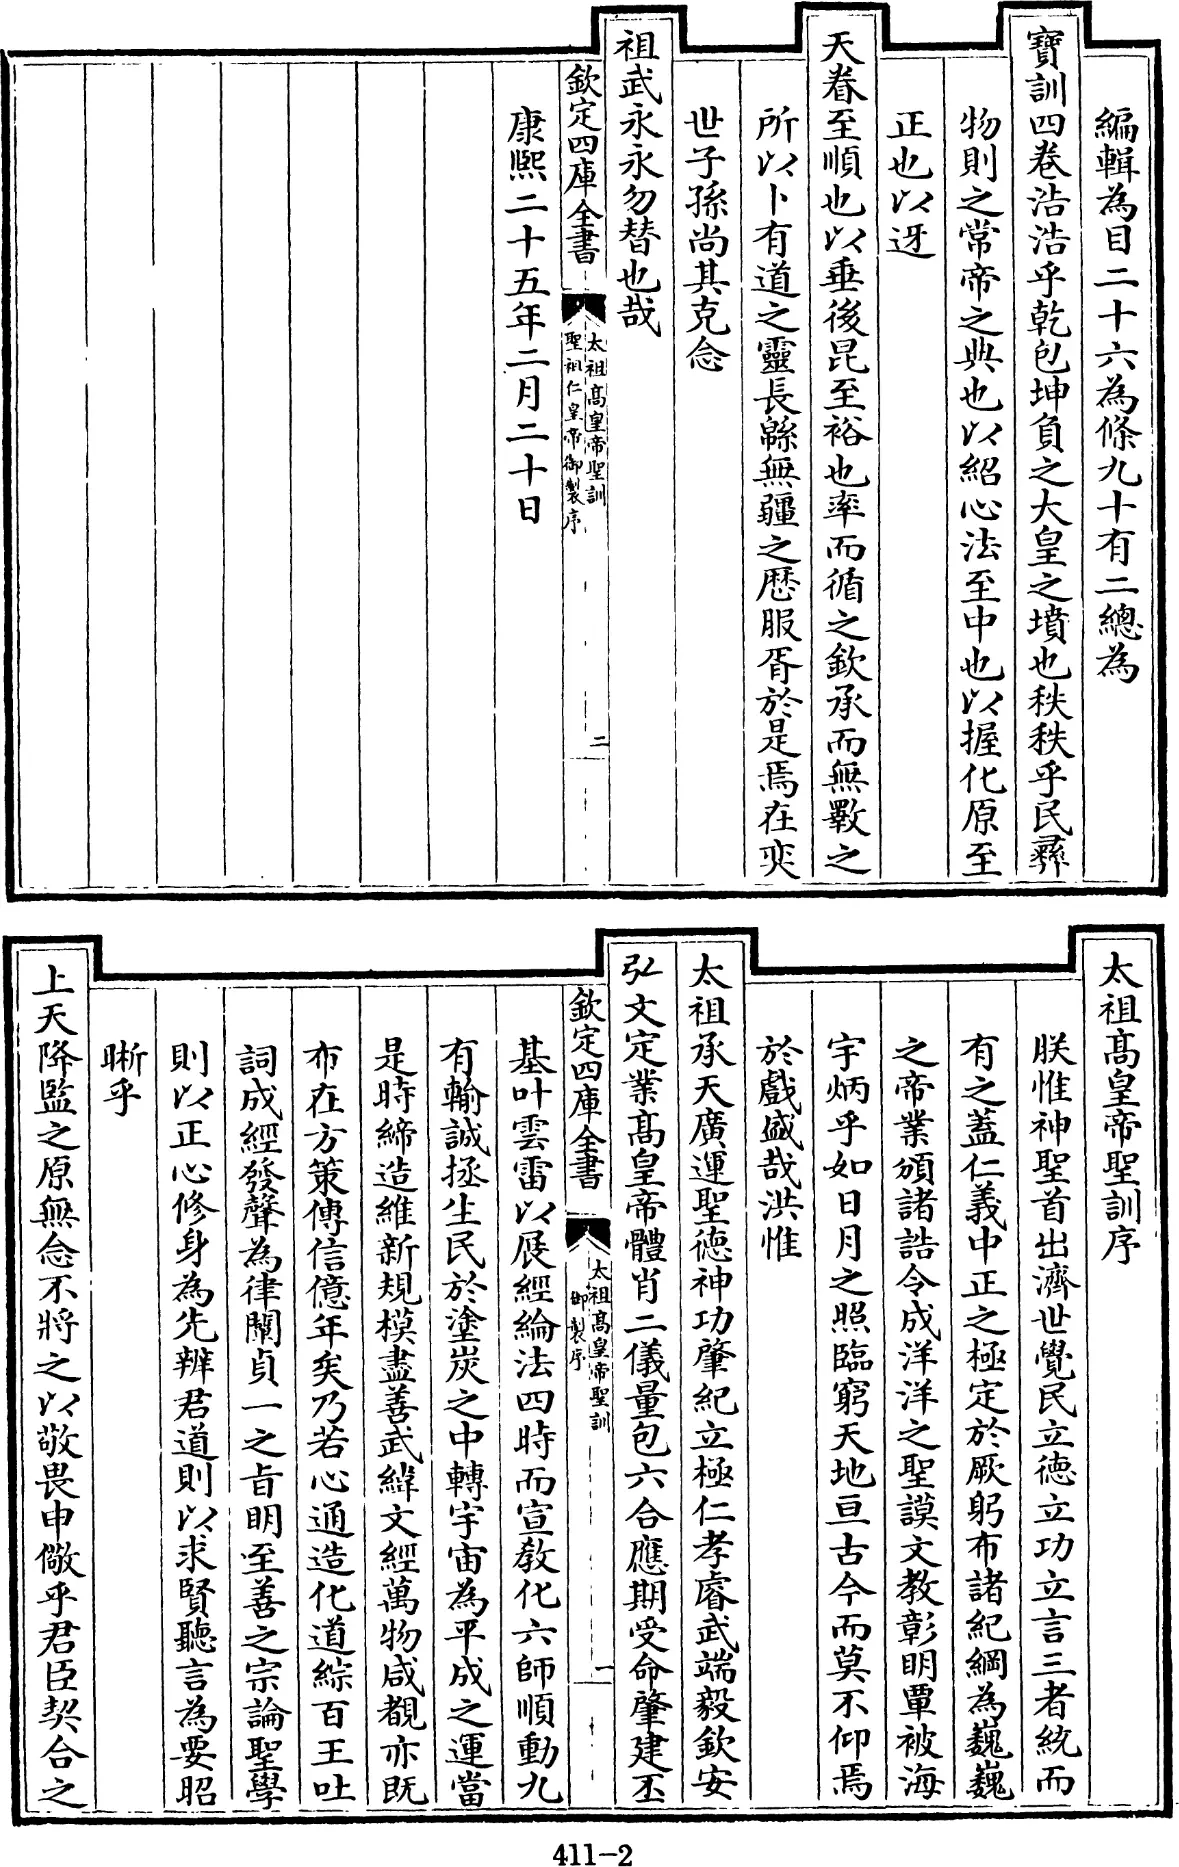 編輯為目二十六為條九十有二總為
寶訓四卷浩浩乎乾包坤負之大皇之墳也秩秩乎民彛
物則之常帝之典也以紹心法至中也以握化原至
正也以迓
天眷至順也以垂後昆至裕也率而循之欽承而無斁之
所以卜有道之靈長緜無疆之歴服胥於是焉在奕
世子孫尚其克念
祖武永永勿替也哉
欽定四庫全書
太祖高皇帝聖訓
聖祖仁皇帝御製序
二
康熙二十五年二月二十日
太祖高皇帝聖訓序
朕惟神聖首出濟世覺民立徳立功立言三者統而
有之蓋仁義中正之極定於厥躬布諸紀綱為巍巍
之帝業頒諸誥令成洋洋之聖謨文教彰明覃被海
宇炳乎如日月之照臨窮天地亘古今而莫不仰焉
於戲盛哉洪惟
太祖承天廣運聖徳神功肇紀立極仁孝睿武端毅欽安
弘文定業高皇帝體肖二儀量包六合應期受命肇建丕
欽定四庫全書
太祖高皇帝聖訓
御製序
一
基叶雲雷以展經綸法四時而宣教化六師順動九
有輸誠拯生民於塗炭之中轉宇宙為平成之運當
是時締造維新規模盡善武緯文經萬物咸覩亦既
布在方策傳信億年矣乃若心通造化道綜百王吐
詞成經發聲為律闡貞一之旨明至善之宗論聖學
則以正心修身為先辨君道則以求賢聽言為要昭
晰乎
上天降監之原無念不將之以敬畏申儆乎君臣契合之
411-2